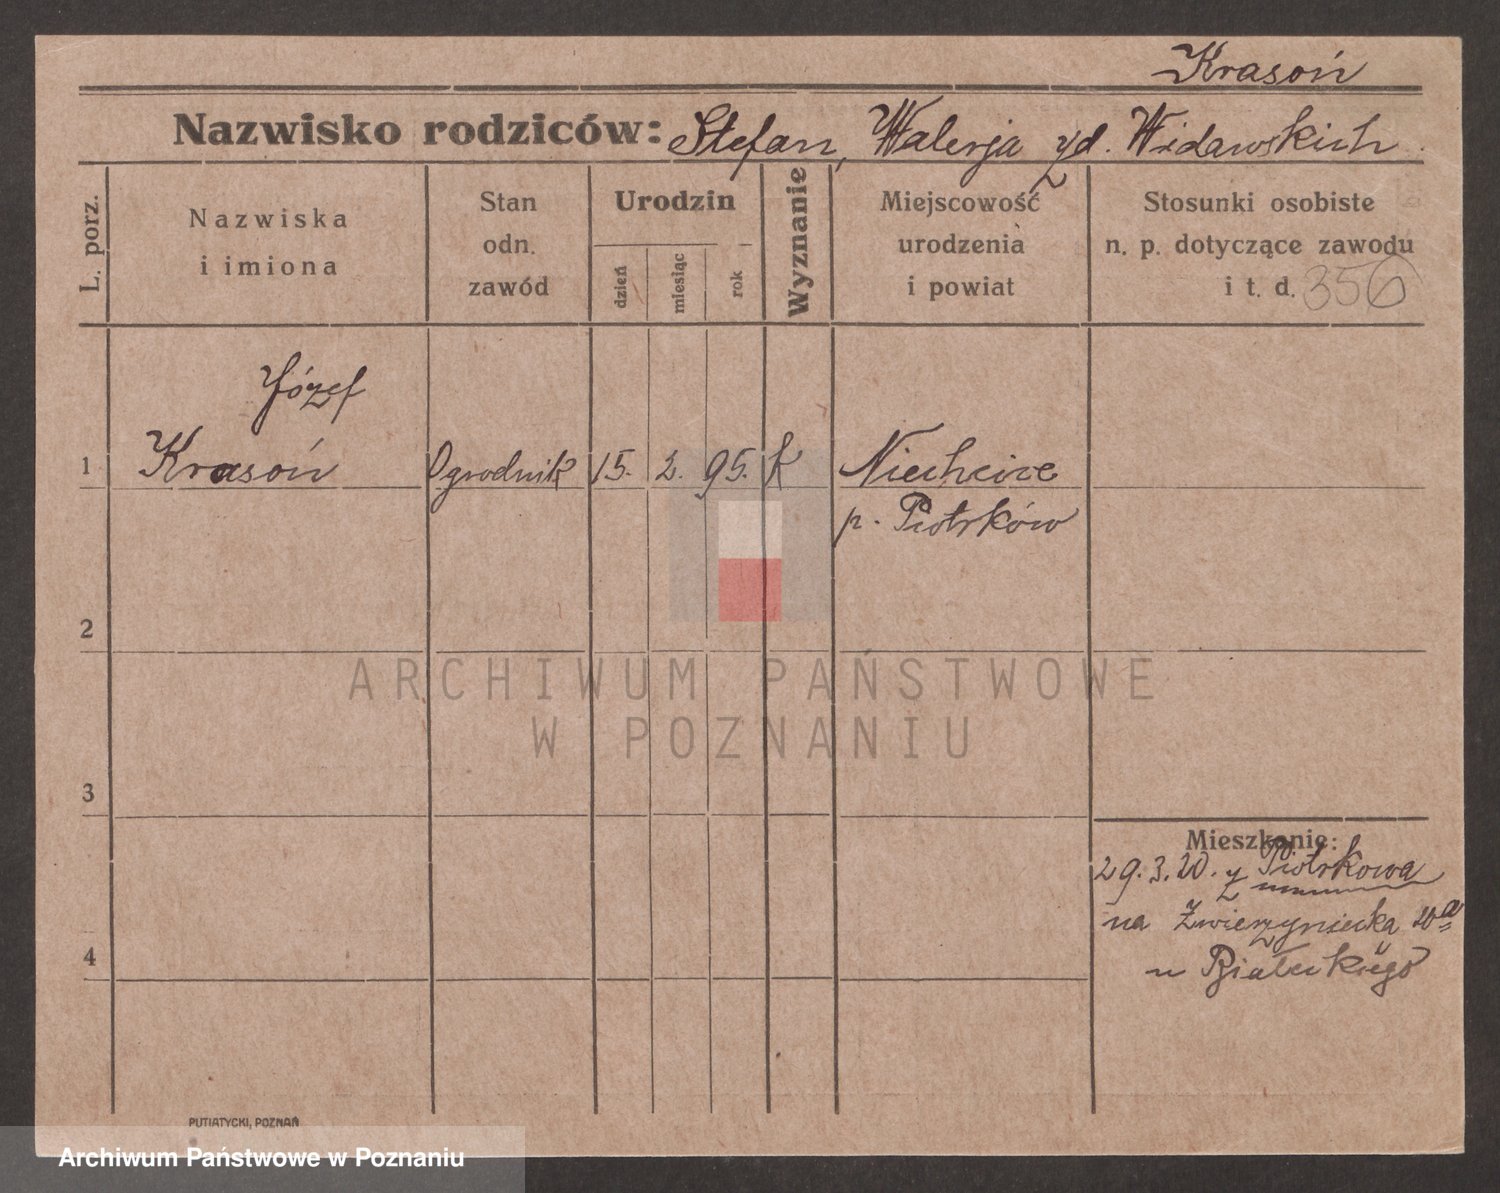 Krasoń
Nazwisko rodziców: Stefan, Walerja zd. Widawskich
L. porz.
Nazwiska
i imiona
Stan
odn.
zawód
Urodzin
dzień
miesiąc
rok
Wyznanie
Miejscowość
urodzenia
i powiat
Stosunki osobiste
n. p. dotyczące zawodu
i t. d. 356
Józef
1 Krasoń Ogrodnik 15. 2. 95. k Niechcice
p. Piotrków
2
ARCHIWUM PAŃSTWOWE
W POZNANIU
3
Mieszkanie:
29.3.20. z Piotrkowa
na Zwierzyniecka 20a
4
u Białeckiego
PUTIATYCKI, POZNAŃ
Archiwum Państwowe w Poznaniu